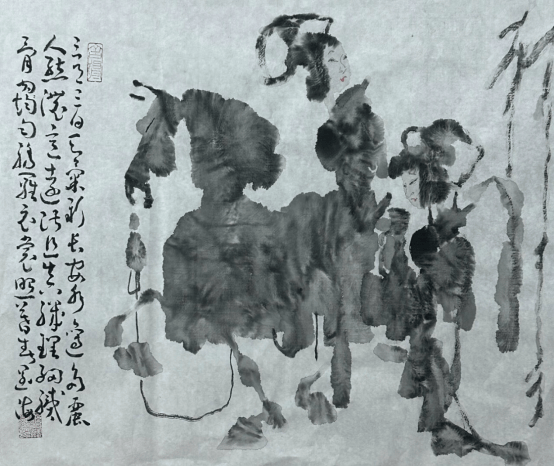 三月三日天氣新長安水邊多麗
人態濃意遠淑且真肌理細膩
骨肉均勻繡羅衣裳照暮春